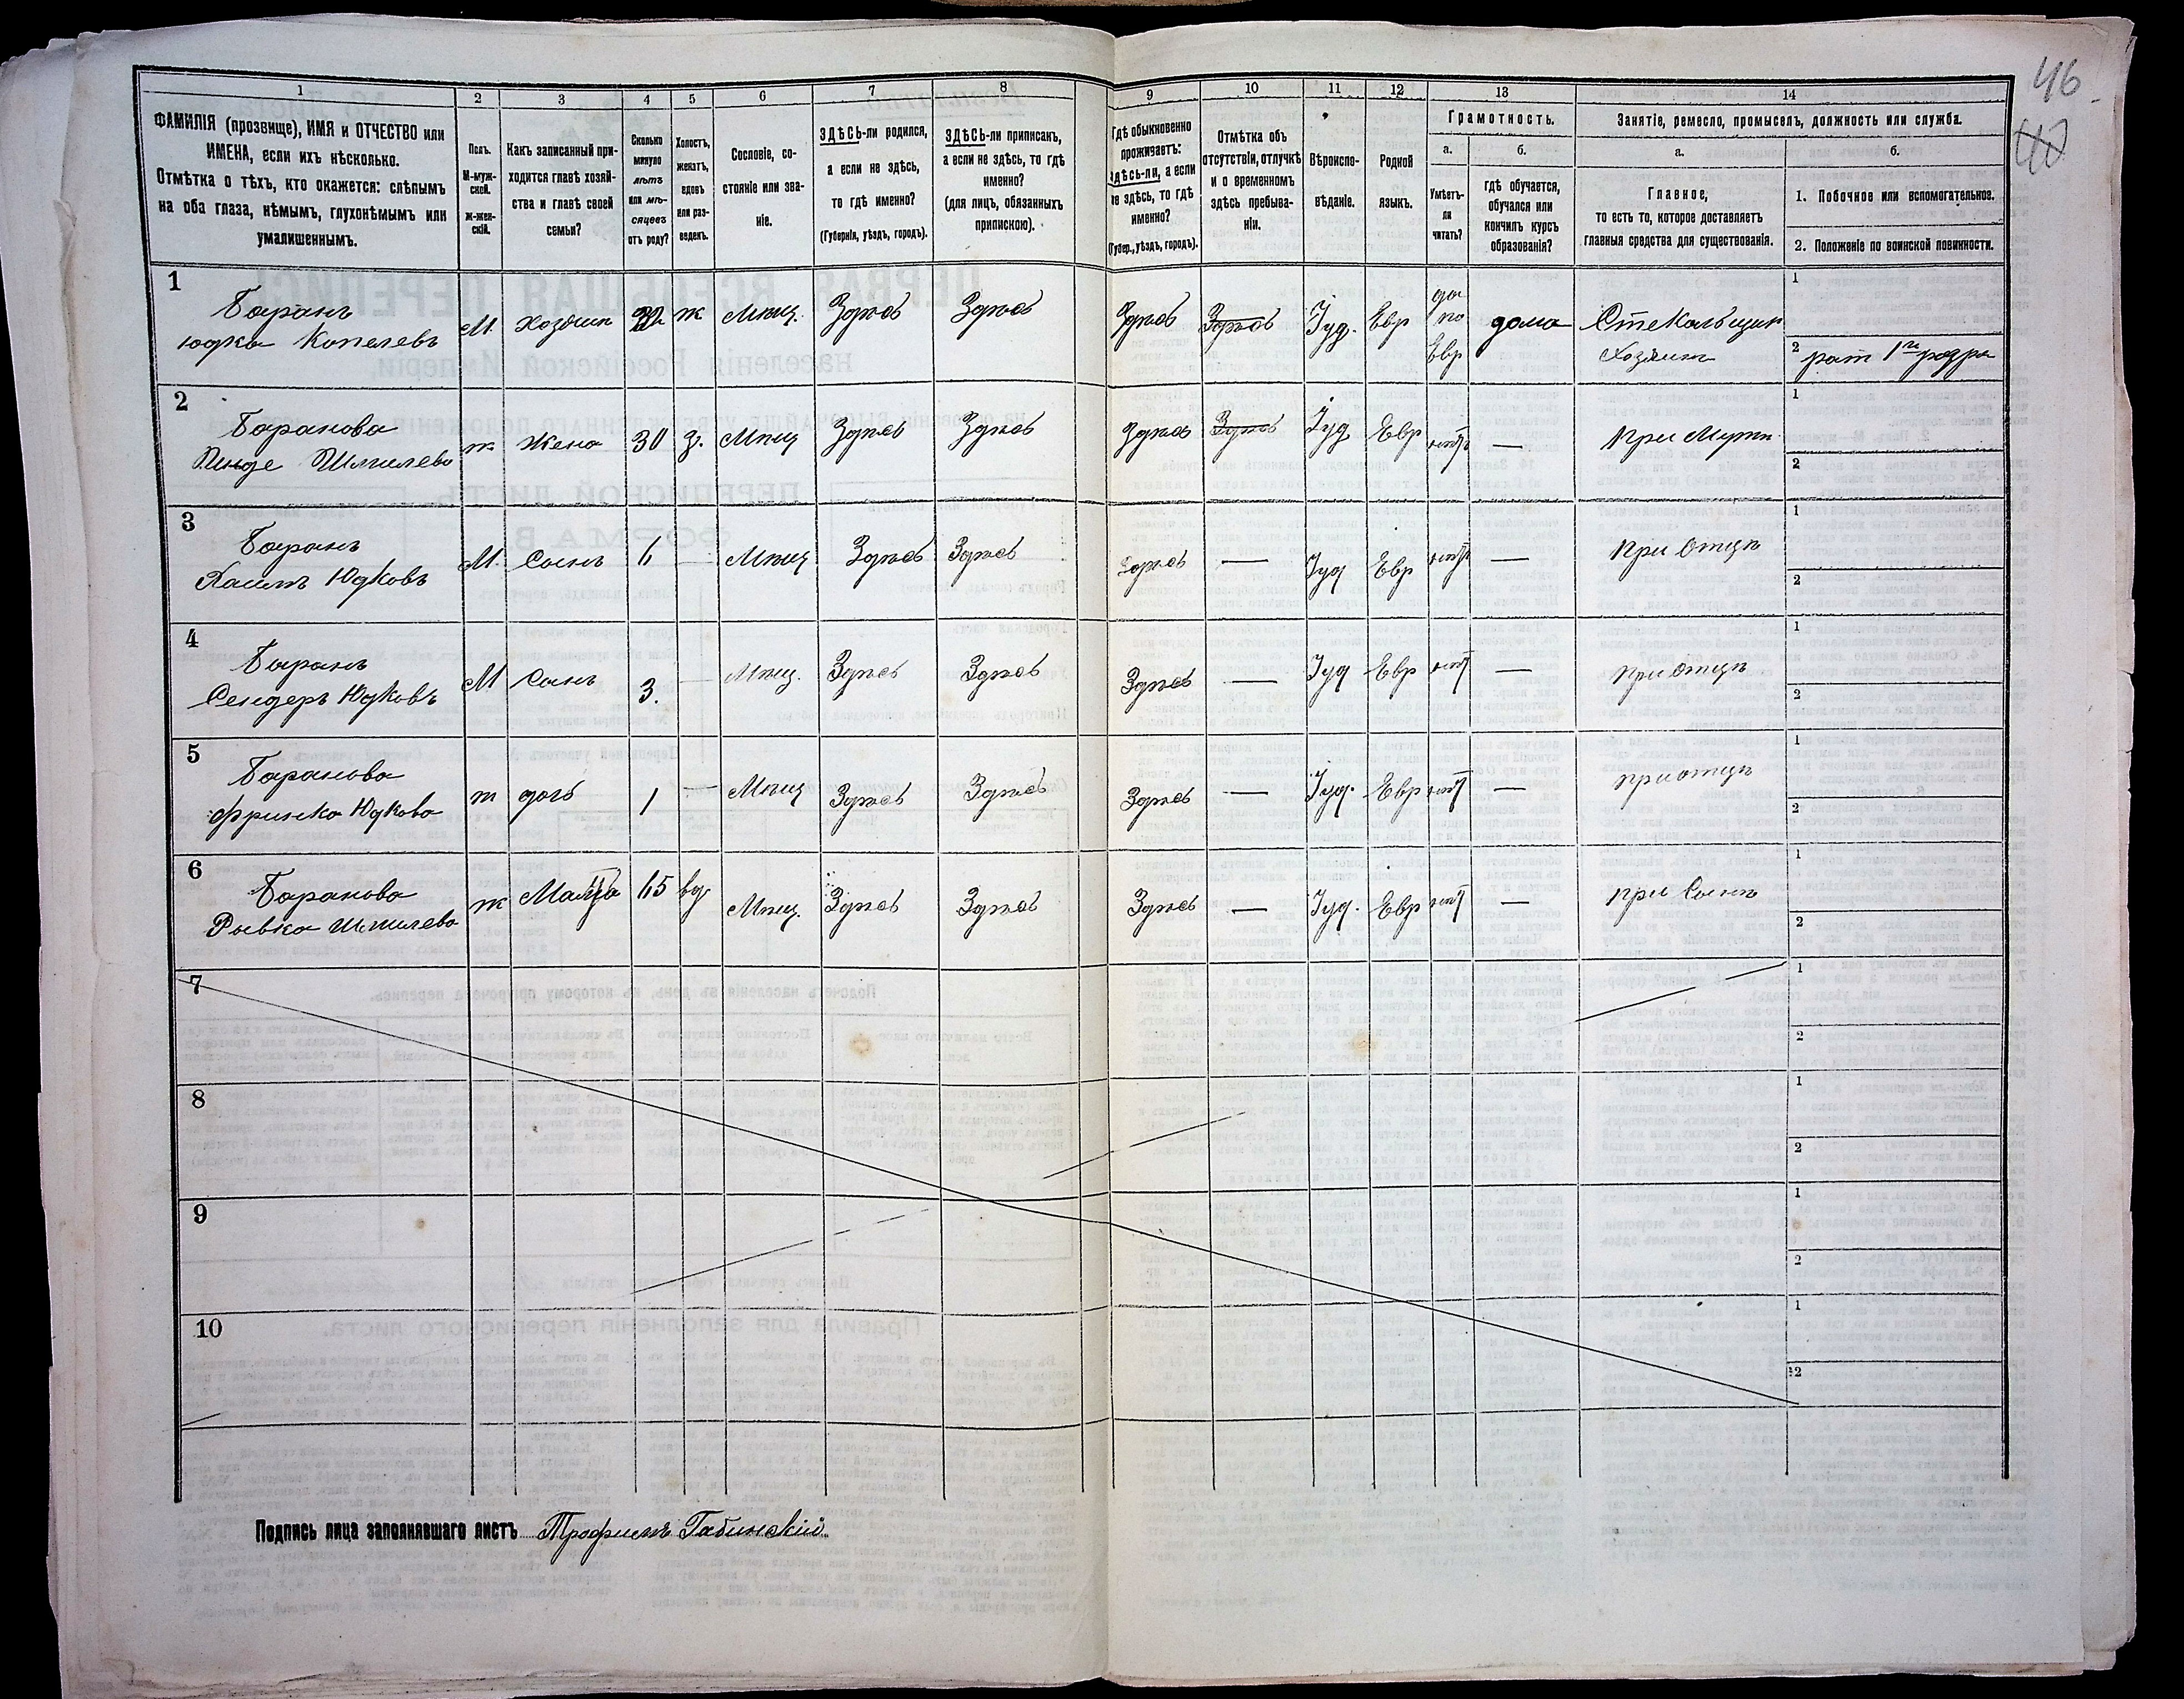 46
40
1
2
3
4
5
6
7
8
9
10
11
12
13
14
ФАМИЛІЯ (прозвище), ИМЯ и ОТЧЕСТВО или
ИМЕНА, если ихъ нѣсколько.
Отмѣтка о тѣхъ, кто окажется: слѣпымъ
на оба глаза, нѣмымъ, глухонѣмымъ или
умалишеннымъ.
Полъ.
М-муж-
ской.
Ж-жен-
скій.
Какъ записанный при-
ходится главѣ хозяй-
ства и главѣ своей
семьи?
Сколько
минуло
лѣтъ
или мѣ-
сяцевъ
отъ роду?
Холостъ,
женатъ,
вдовъ
или раз-
веденъ.
Сословіе, со-
стояніе или зва-
ніе.
ЗДѢСЬ-ли родился,
а если не здѣсь,
то гдѣ именно?
(Губернія, уѣздъ, городъ).
ЗДѢСЬ-ли приписанъ,
а если не здѣсь, то гдѣ
именно?
(для лицъ, обязанныхъ
припискою).
Гдѣ обыкновенно
проживаетъ:
здѣсь-ли, а если
не здѣсь, то гдѣ
именно?
(Губер., уѣздъ, городъ).
Отмѣтка объ
отсутствіи, отлучкѣ
и о временномъ
здѣсь пребыва-
ніи.
Вѣроиспо-
вѣданіе.
Родной
языкъ.
Грамотность.
а.
Умѣетъ-
ли
читать?
б.
гдѣ обучается,
обучался или
кончилъ курсъ
образованія?
Занятіе, ремесло, промыселъ, должность или служба.
а.
Главное,
то есть то, которое доставляетъ
главныя средства для существованія.
б.
1. Побочное или вспомогательное.
2. Положеніе по воинской повинности.
1
Баранъ
Юдка Копелевъ
М.
Хозяин
ж
Мѣщ.
Здѣсь
Здѣсь
Здѣсь
Здѣсь
Іуд.
Евр
да
по
Евр
дома
Стекольщик
Хозяин
1
2 рат 1го разря
2
Баранова
Шмилева
ж
Жена
30
з.
Мѣщ
Здѣсь
Здѣсь
Здѣсь
Здѣсь
Іуд
Евр
нѣтъ
—
при Мужѣ
1
2
3
Баранъ
Хаимъ Юдковъ
М.
Сынъ
6
—
Мѣщ
Здѣсь
Здѣсь
Здѣсь
—
Іуд
Евр
нѣтъ
—
при Отцѣ
1
2
4
Баранъ
Сендеръ Юдковъ
М
Сынъ
3.
—
Мѣщ.
Здѣсь
Здѣсь
Здѣсь
—
Іуд
Евр
нѣт
—
при Отцѣ
1
2
5
Баранова
Фринка Юдкова
ж
дочь
1
—
Мѣщ
Здѣсь
Здѣсь
Здѣсь
—
Іуд.
Евр
нѣт
—
при отцѣ
1
2
6
Баранова
Рывка Шмилева
ж
Мать
65
вд
Мѣщ.
Здѣсь
Здѣсь
Здѣсь
—
Іуд.
Евр
нѣт
—
при Сынѣ
1
2
7
1
2
8
1
2
9
1
2
10
1
2
Подпись лица заполнявшаго листъ Трофимъ Габинскій